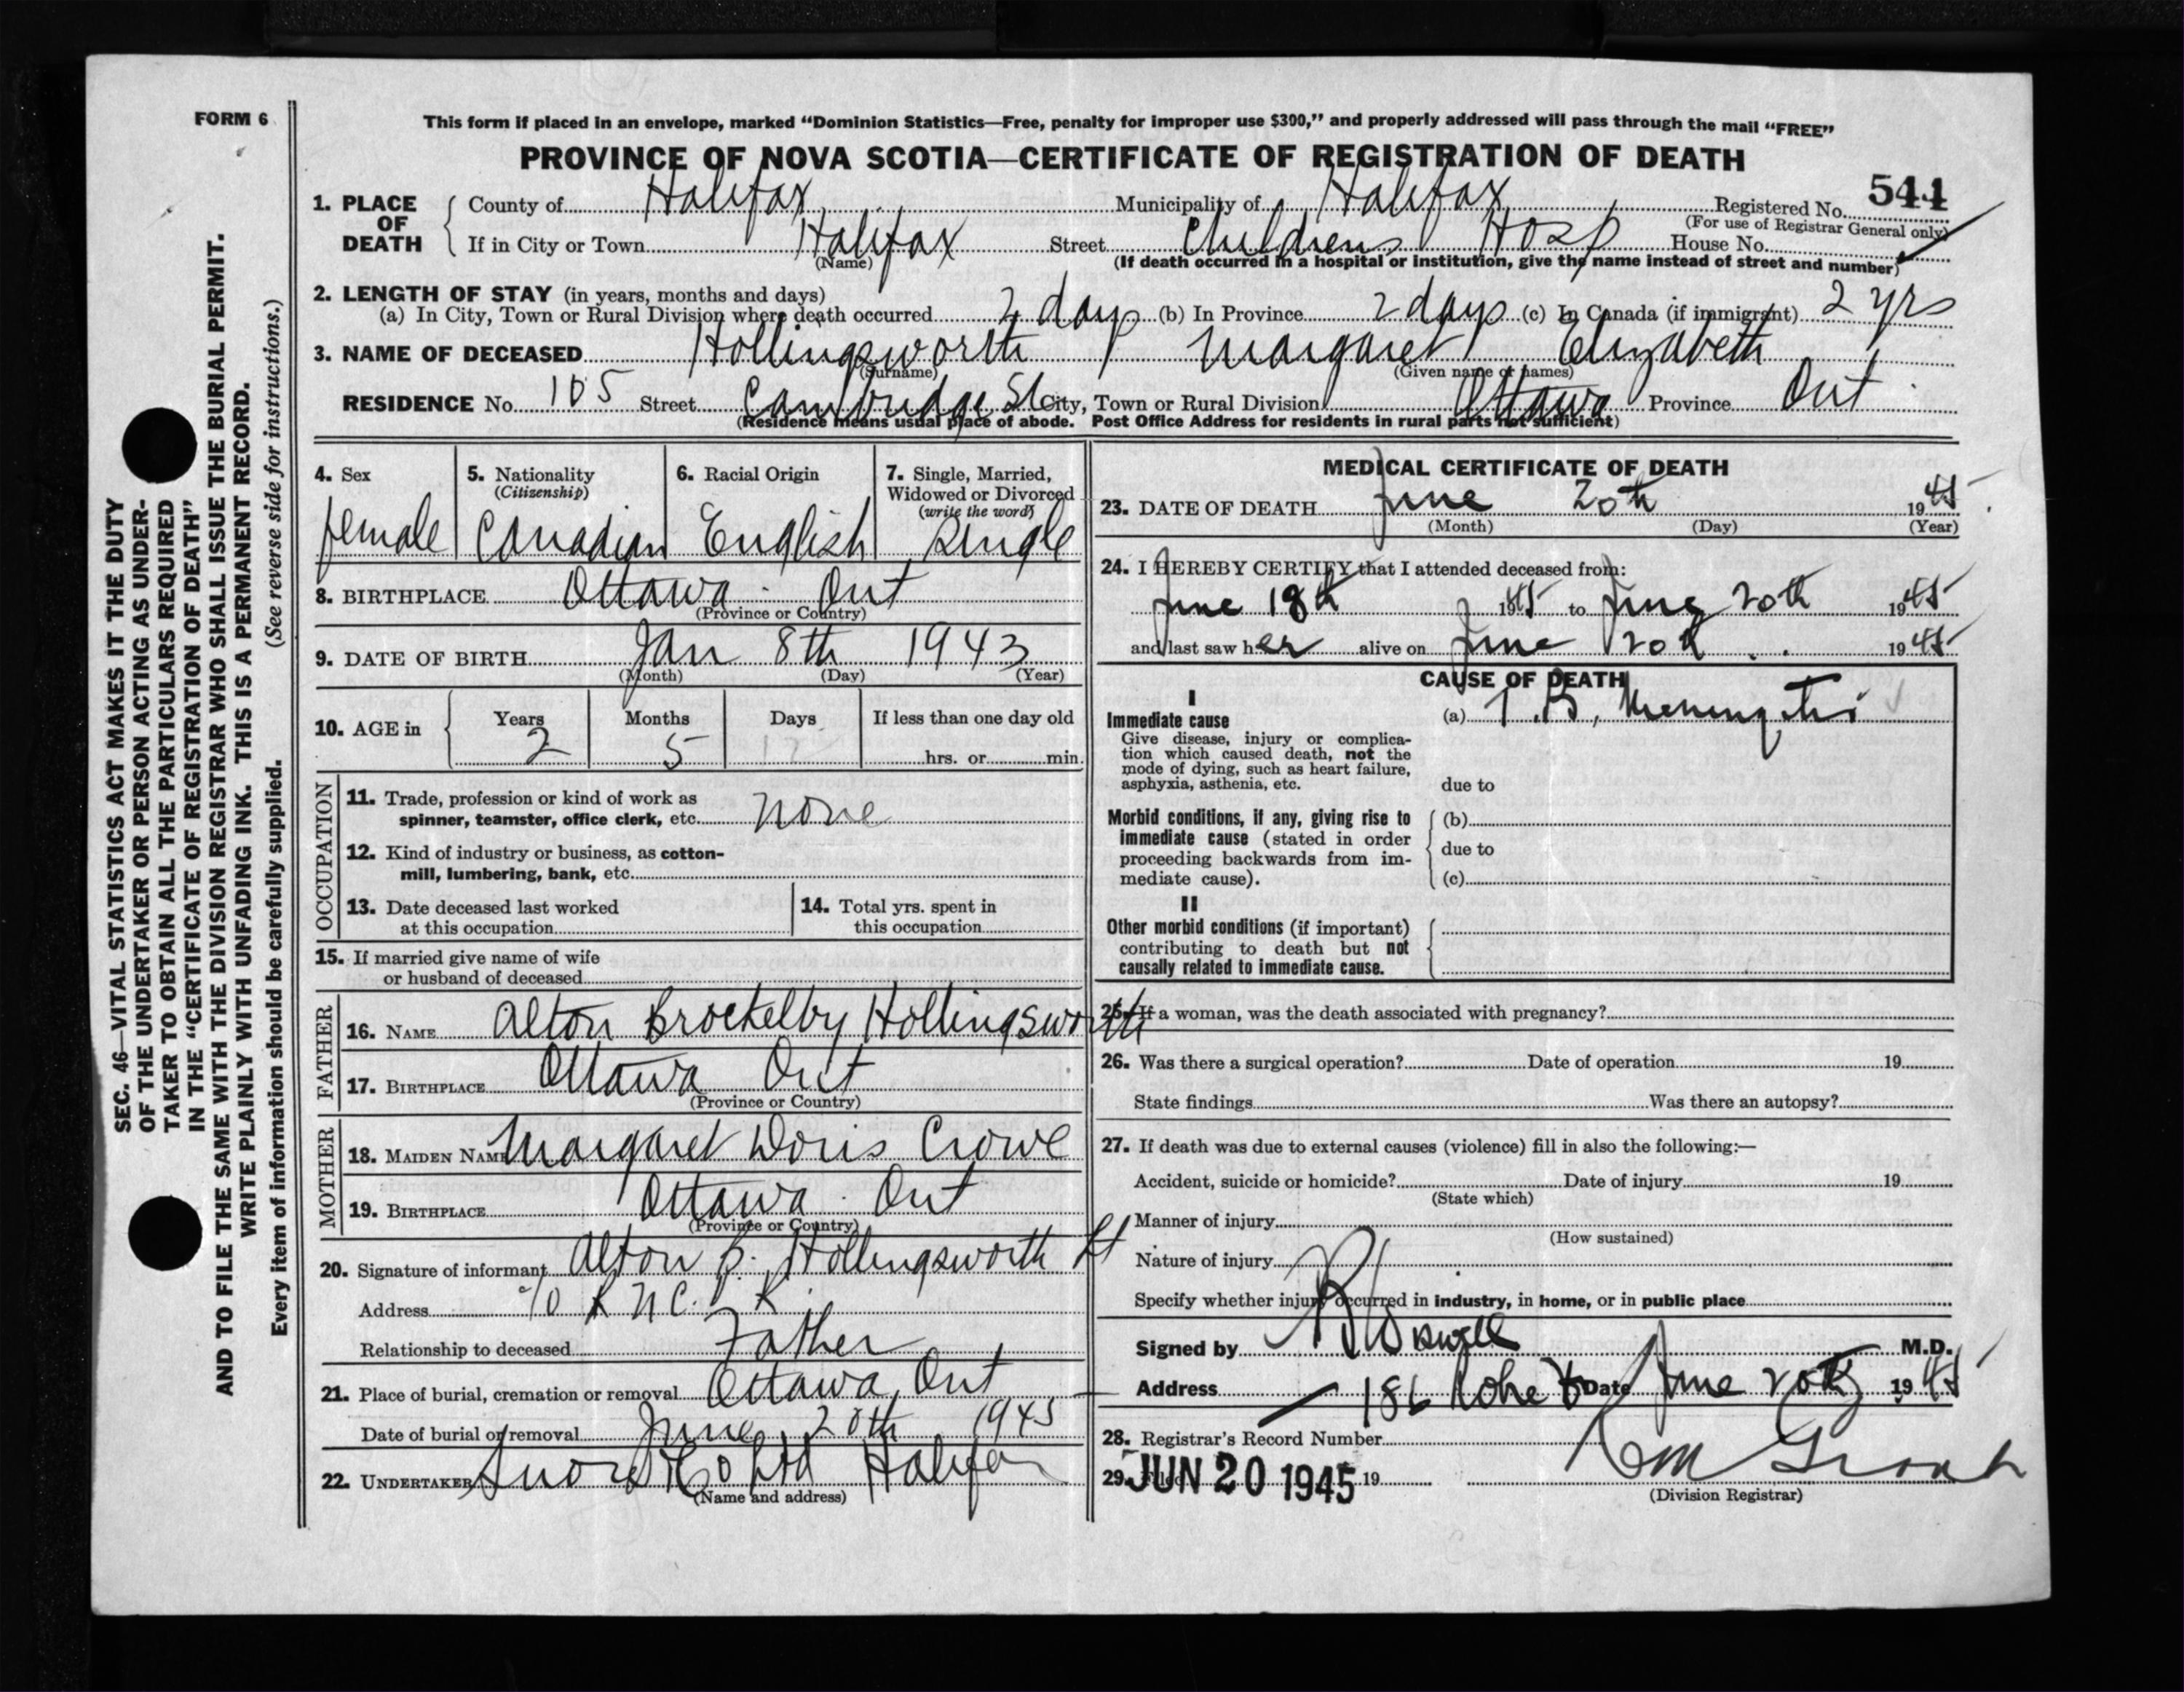 FORM 6
This form if placed in an envelope, marked “Dominion Statistics—Free, penalty for improper use $300,” and properly addressed will pass through the mail “FREE”
PROVINCE OF NOVA SCOTIA—CERTIFICATE OF REGISTRATION OF DEATH
1. PLACE OF DEATH County of Halifax Municipality of Halifax Registered No. 544
(For use of Registrar General only)
If in City or Town Halifax Street Childrens Hosp House No.
(Name) (If death occurred in a hospital or institution, give the name instead of street and number)
2. LENGTH OF STAY (in years, months and days)
(a) In City, Town or Rural Division where death occurred 2 days (b) In Province 2 days (c) In Canada (if immigrant) 2 yrs
3. NAME OF DECEASED Hollingsworth Margaret Elizabeth
(Surname) (Given name or names)
RESIDENCE No. 105 Street Cambridge St City, Town or Rural Division Ottawa Province Ont
(Residence means usual place of abode. Post Office Address for residents in rural parts not sufficient)
4. Sex 5. Nationality 6. Racial Origin 7. Single, Married,
(Citizenship) Widowed or Divorced
(write the word)
female Canadian English Single
8. BIRTHPLACE Ottawa - Ont
(Province or Country)
9. DATE OF BIRTH Jan 8th 1943
(Month) (Day) (Year)
10. AGE in Years Months Days If less than one day old
2 5 12 hrs. or min.
OCCUPATION
11. Trade, profession or kind of work as
spinner, teamster, office clerk, etc. none
12. Kind of industry or business, as cotton-
mill, lumbering, bank, etc.
13. Date deceased last worked
at this occupation
14. Total yrs. spent in
this occupation
15. If married give name of wife
or husband of deceased
FATHER
16. NAME Alton Brockelby Hollingsworth
17. BIRTHPLACE Ottawa Ont
(Province or Country)
MOTHER
18. MAIDEN NAME Margaret Doris Crowe
19. BIRTHPLACE Ottawa - Ont
(Province or Country)
20. Signature of informant Alton B. Hollingsworth Lt
Address c/o R N C.
Relationship to deceased Father
21. Place of burial, cremation or removal Ottawa, Ont
Date of burial or removal June 20th 1945
22. UNDERTAKER Snow & Co Ltd Halifax
(Name and address)
MEDICAL CERTIFICATE OF DEATH
23. DATE OF DEATH June 20th 1945
(Month) (Day) (Year)
24. I HEREBY CERTIFY that I attended deceased from:
June 18th 1945 to June 20th 1945
and last saw her alive on June 20th 1945
CAUSE OF DEATH
I
Immediate cause (a) T.B. Meningitis
Give disease, injury or complica-
tion which caused death, not the
mode of dying, such as heart failure,
asphyxia, asthenia, etc. due to
Morbid conditions, if any, giving rise to (b)
immediate cause (stated in order
proceeding backwards from im- due to
mediate cause). (c)
II
Other morbid conditions (if important)
contributing to death but not
causally related to immediate cause.
25. If a woman, was the death associated with pregnancy?
26. Was there a surgical operation? Date of operation 19
State findings Was there an autopsy?
27. If death was due to external causes (violence) fill in also the following:—
Accident, suicide or homicide? Date of injury 19
(State which)
Manner of injury
(How sustained)
Nature of injury
Specify whether injury occurred in industry, in home, or in public place
Signed by M.D.
Address 186 Date June 20th 1945
28. Registrar's Record Number
29. Filed JUN 20 1945 19
(Division Registrar)
SEC. 46—VITAL STATISTICS ACT MAKES IT THE DUTY
OF THE UNDERTAKER OR PERSON ACTING AS UNDER-
TAKER TO OBTAIN ALL THE PARTICULARS REQUIRED
IN THE “CERTIFICATE OF REGISTRATION OF DEATH”
AND TO FILE THE SAME WITH THE DIVISION REGISTRAR WHO SHALL ISSUE THE BURIAL PERMIT.
WRITE PLAINLY WITH UNFADING INK. THIS IS A PERMANENT RECORD.
Every item of information should be carefully supplied. (See reverse side for instructions.)